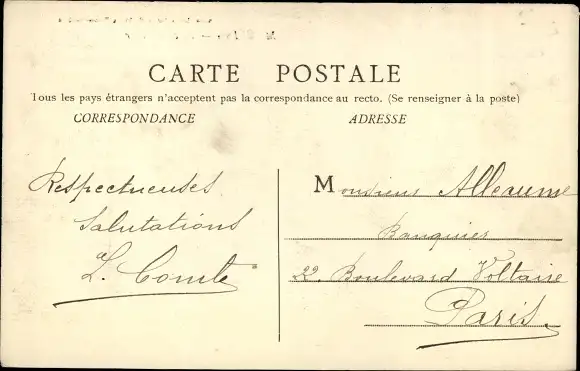 CARTE POSTALE
Tous les pays étrangers n'acceptent pas la correspondance au recto. (Se renseigner à la poste)
CORRESPONDANCE
ADRESSE
Respectueuses
Salutations
L. Comte
Monsieur Alleaume
Banquier
22. Boulevard Voltaire
Paris